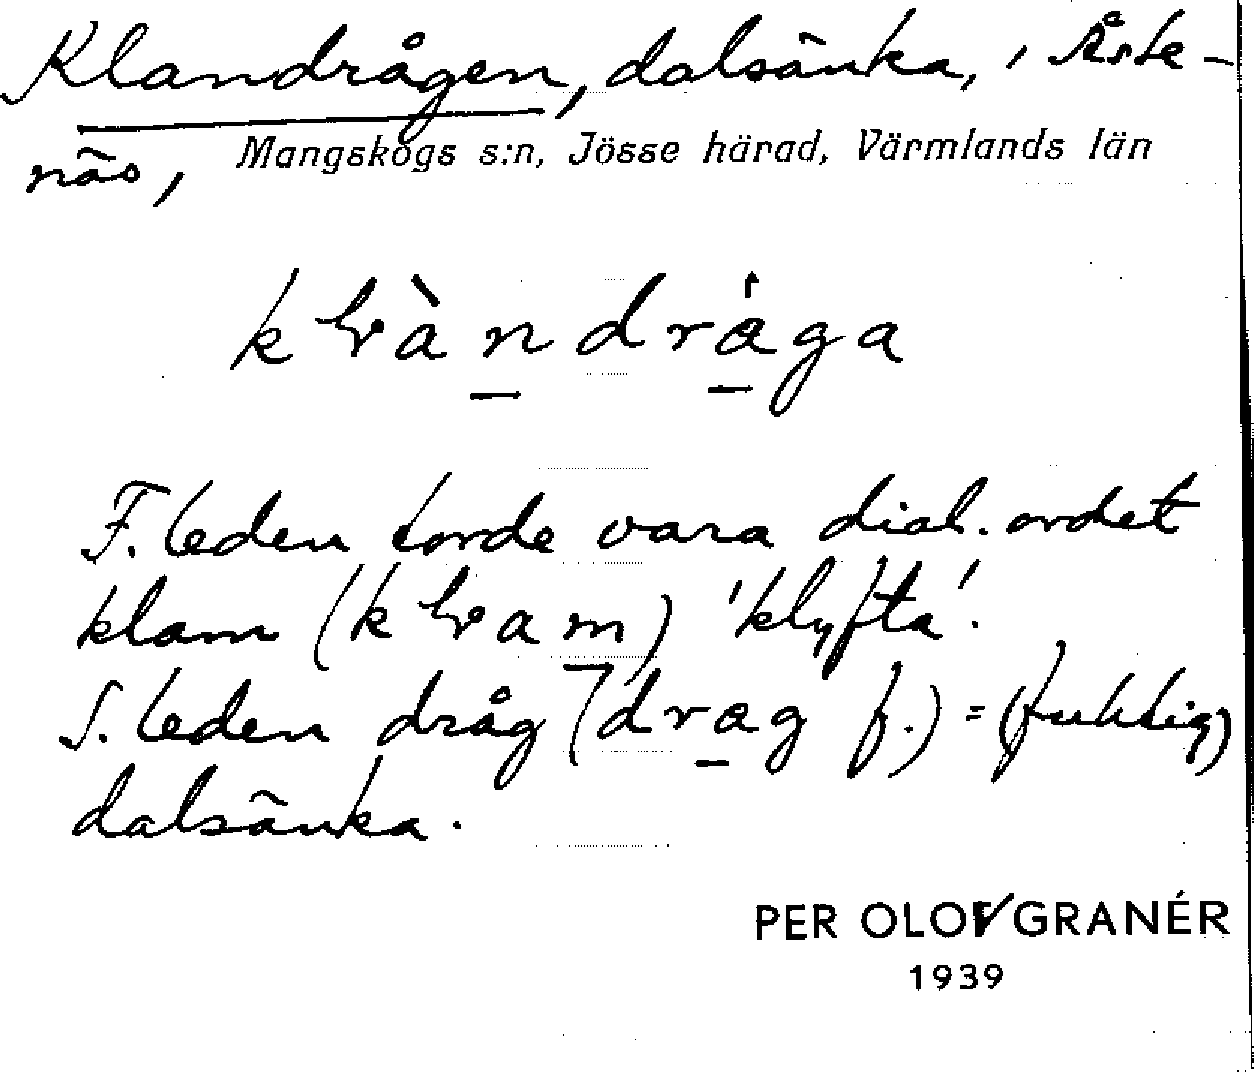 Klandrågen, dalsänka, i Åste-
näs, Mangskogs s:n, Jösse härad, Värmlands län
F. leden torde vara dial. ordet
klam ( ) 'klyfta'.
S. leden dråg (drag f.) = (fuktig)
dalsänka.
PER OLOV GRANÉR
1939